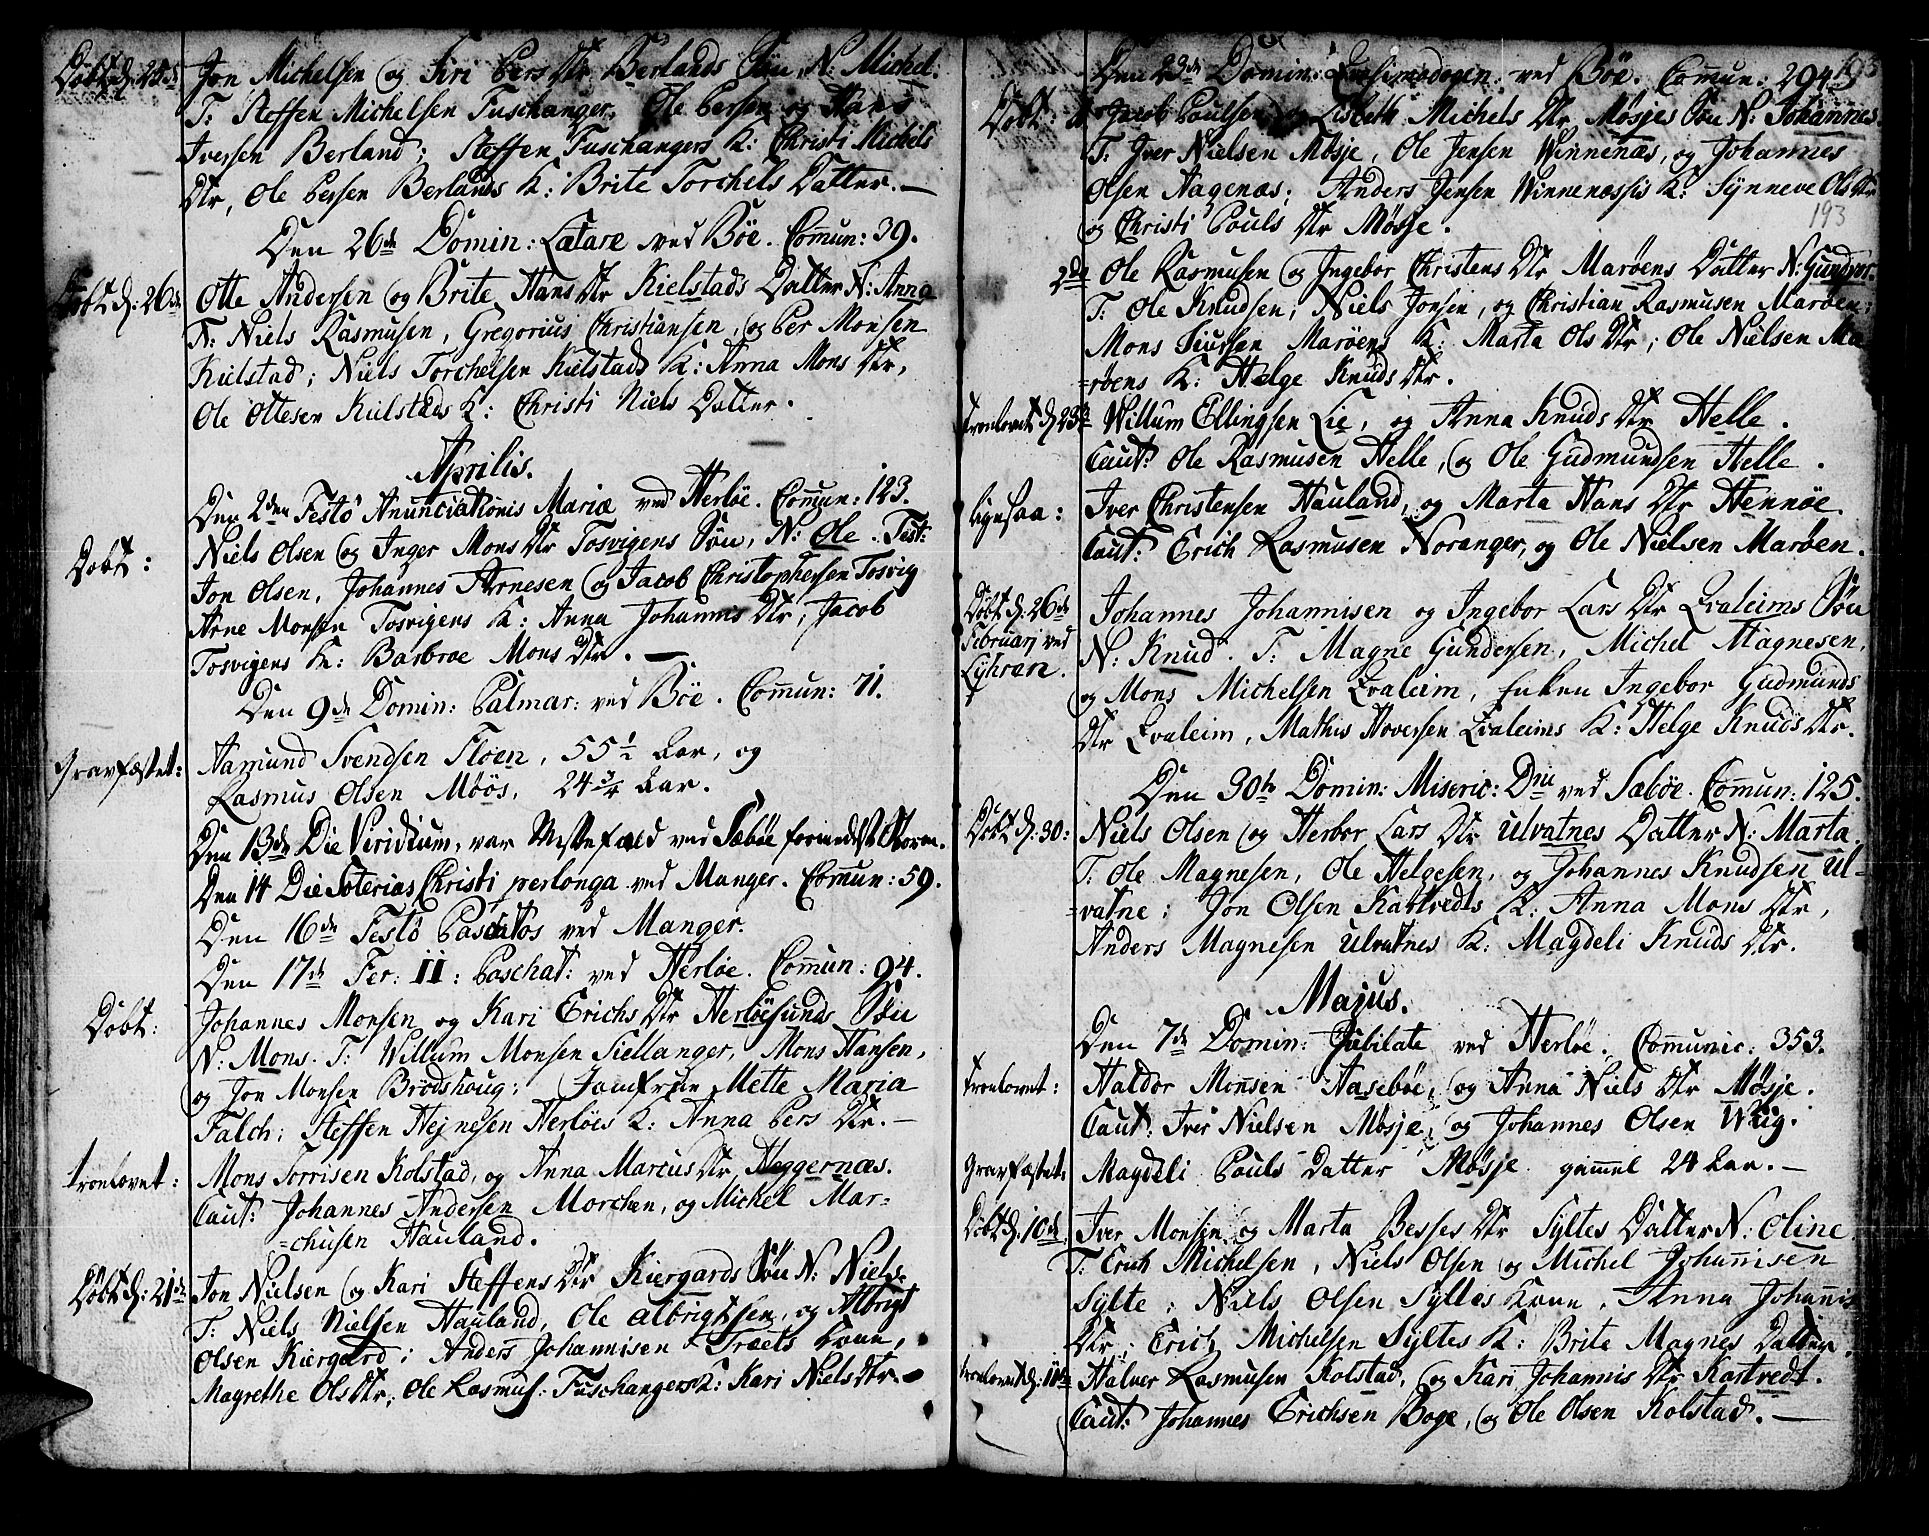 Døbt d: 25de Jon Michelsen og Siri Pers Dtr Berlands Søn, N: Michel.
T: Steffen Michelsen Tuschanger, Ole Persen og Hans
Iversen Berland; Steffen Tuschangers K: Christi Michels
Dtr, Ole Persen Berlands K: Brite Torchels Datter. —
Den 26de Domin: Lætare ved Bøe. Comun: 39.
Døbt d: 26de Otte Andersen og Brite Hans Dtr Kielstads Datter N: Anna
T: Niels Rasmusen, Gregorius Christiansen, og Per Monsen
Kielstad; Niels Torchelsen Kielstads K: Anna Mons Dtr,
Ole Ottesen Kielstads K: Christi Niels Datter.
Aprilis.
Den 2den Festo Anunciationis Mariæ ved Herløe. Comun: 123.
Døbt: Niels Olsen og Inger Mons Dtr Tosvigens Søn, N: Ole. Test:
Jon Olsen, Johannes Arnesen og Jacob Christophersen Tosvig
Arne Monsen Tosvigens K: Anna Johannis Dtr, Jacob
Tosvigens K: Barbroe Mons Dtr. —
Den 9de Domin: Palmar: ved Bøe. Comun: 71.
Gravfæstet: Aamund Svendsen Fløen, 55 1/2 Aar, og
Rasmus Olsen Møøs, 24 3/4 Aar.
Den 13de Die Viridium, var Messefald ved Sæbøe formedelst Storm.
Den 14 Die Soterias Christi perlonga ved Manger. Comun: 59.
Den 16de Festo Paschatos ved Manger.
Den 17de Fer: II: Paschat: ved Herløe. Comun: 94.
Døbt: Johannes Monsen og Kari Erichs Dtr Herløesunds Søn
N: Mons. T: Willum Monsen Siellanger, Mons Hansen,
og Jon Monsen Brodshoug; Jomfrue Mette Maria
Falch; Steffen Hejnesen Herløes K: Anna Pers Dtr. —
Troelovet: Mons Torrisen Kolstad, og Anna Marcus Dtr Heggernæs.
Caut: Johannes Andersen Morchen, og Michel Mar-
=chusen Hauland.
Døbt d: 21de Jon Nielsen og Kari Steffens Dtr Kiergards Søn N: Niels.
T: Niels Nielsen Hauland, Ole Albrigtsen, og Albrigt
Olsen Kiergard; Anders Johannisen Træets Kone,
Magrethe Ols Dtr; Ole Rasmus: Tuschangers K: Kari Niels Dtr.
193
Den 23de Domin: Qvasimodogen: ved Bøe. Comun: 294
Døbt: Jacob Poulsen og Lisbeth Michels Dtr Møsjes Søn N: Johannes.
T: Iver Nielsen Møsje, Ole Jensen Winnenæs, og Johannes
Olsen Aagenæs; Anders Jensen Winnenæsses K: Synneve Ols Dtr
193
og Christi Pouls Dtr Møsje.
2de Ole Rasmusen og Ingebor Christens Dtr Marøens Datter N: Gundvor.
T: Ole Knudsen, Niels Jonsen, og Christian Rasmusen Marøen;
Mons Siursen Marøens K: Marta Ols Dtr; Ole Nielsen Ma
=røens K: Helge Knuds Dtr.
Troelovet d: 23de Willum Ellingsen Lie, og Anna Knuds Dtr Helle.
Caut: Ole Rasmusen Helle, og Ole Gudmundsen Helle.
Ligesaa: Iver Christensen Hauland, og Marta Hans Dtr Hennøe.
Caut: Erich Rasmusen Noranger, og Ole Nielsen Marøen.
Døbt d: 26de Februarj ved Lyhren. Johannes Johannisen og Ingebor Lars Dtr Qvaleims Søn
N: Knud. T: Magne Gundersen, Michel Magnesen,
og Mons Michelsen Qvaleim, Enken Ingebor Gudmunds
Dtr Qvaleim, Mathis Hoversen Qvaleims K: Helge Knuds Dtr.
Den 30te Domin: Miseric: Dni ved Sæbøe. Comun: 125.
Døbt d: 30: Niels Olsen og Herbor Lars Dtr Ulvatnes Datter N: Marta.
T: Ole Magnesen, Ole Helgesen, og Johannes Knudsen Ul-
=vatne; Jon Olsen Kartvedts K: Anna Mons Dtr,
Anders Magnesen Ulvatnes K: Magdeli Knuds Dtr.
Majus.
Den 7de Domin: Jubilate ved Herløe. Comunic: 353.
Troelovet: Haldor Monsen Aasebøe, og Anna Niels Dtr Møsje.
Caut: Iver Nielsen Møsje, og Johannes Olsen Wiig.
Gravfæstet: Magdeli Pouls Datter Møsje gammel 24 Aar. —
Døbt d: 10de Iver Monsen og Marta Besses Dtr Syltes Datter N: Oline
T: Erich Michelsen, Niels Olsen og Michel Johannisen
Sylte; Niels Olsen Syltes Kone, Anna Johannis
Dtr; Erich Michelsen Syltes K: Brite Magnes Datter.
Troelovet d: 11te Halver Rasmusen Kolstad, og Kari Johannis Dtr Kartvedt.
Caut: Johannes Erichsen Boge, og Ole Olsen Kolstad. —